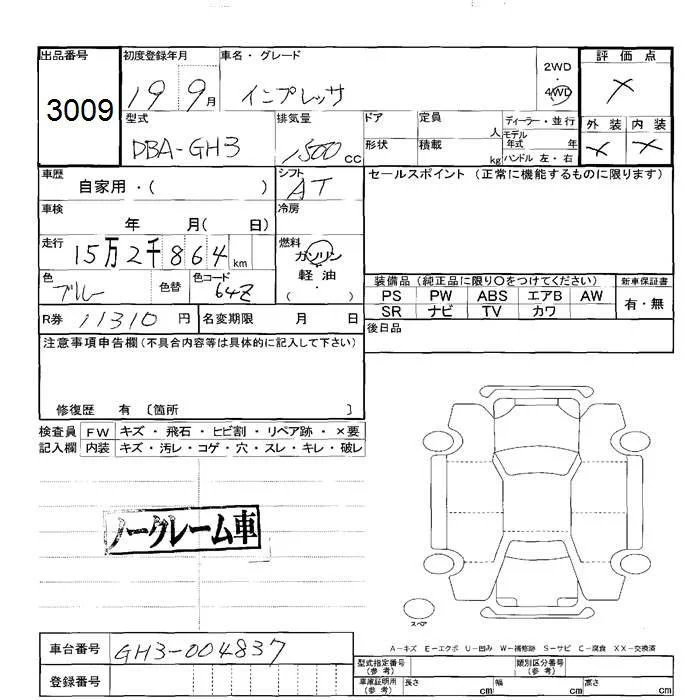 出品番号 初度登録年月 車名・グレード 2WD・4WD 評価点
3009 19 9月 インプレッサ ×
型式 排気量 ドア 定員 人 ディーラー・並行 外装 内装
DBA-GH3 1500cc 形状 積載 kg モデル年式 年 × ×
ハンドル 左・右
車歴 自家用・( ) シフト AT セールスポイント (正常に機能するものに限ります)
車検 年 月( 日) 冷房
走行 15万2千864km 燃料 ガソリン
軽油
( )
色 ブルー 色替 色コード 64Z 装備品 (純正品に限り○をつけてください) 新車保証書
PS PW ABS エアB AW 有・無
SR ナビ TV カワ
R券 11310円 名変期限 月 日 後日品
注意事項申告欄 (不具合内容等は具体的に記入して下さい)
修復歴 有 〔箇所 〕
検査員 FW キズ・飛石・ヒビ割・リペア跡・×要
記入欄 内装 キズ・汚レ・コゲ・穴・スレ・キレ・破レ
ノークレーム車
スペア
A-キズ E-エクボ U-凹み W-補修跡 S-サビ C-腐食 XX-交換済
車台番号 GH3-004837 型式指定番号(参考) 類別区分番号(参考)
登録番号 車庫証明用(参考) 長さ cm 幅 cm 高さ cm